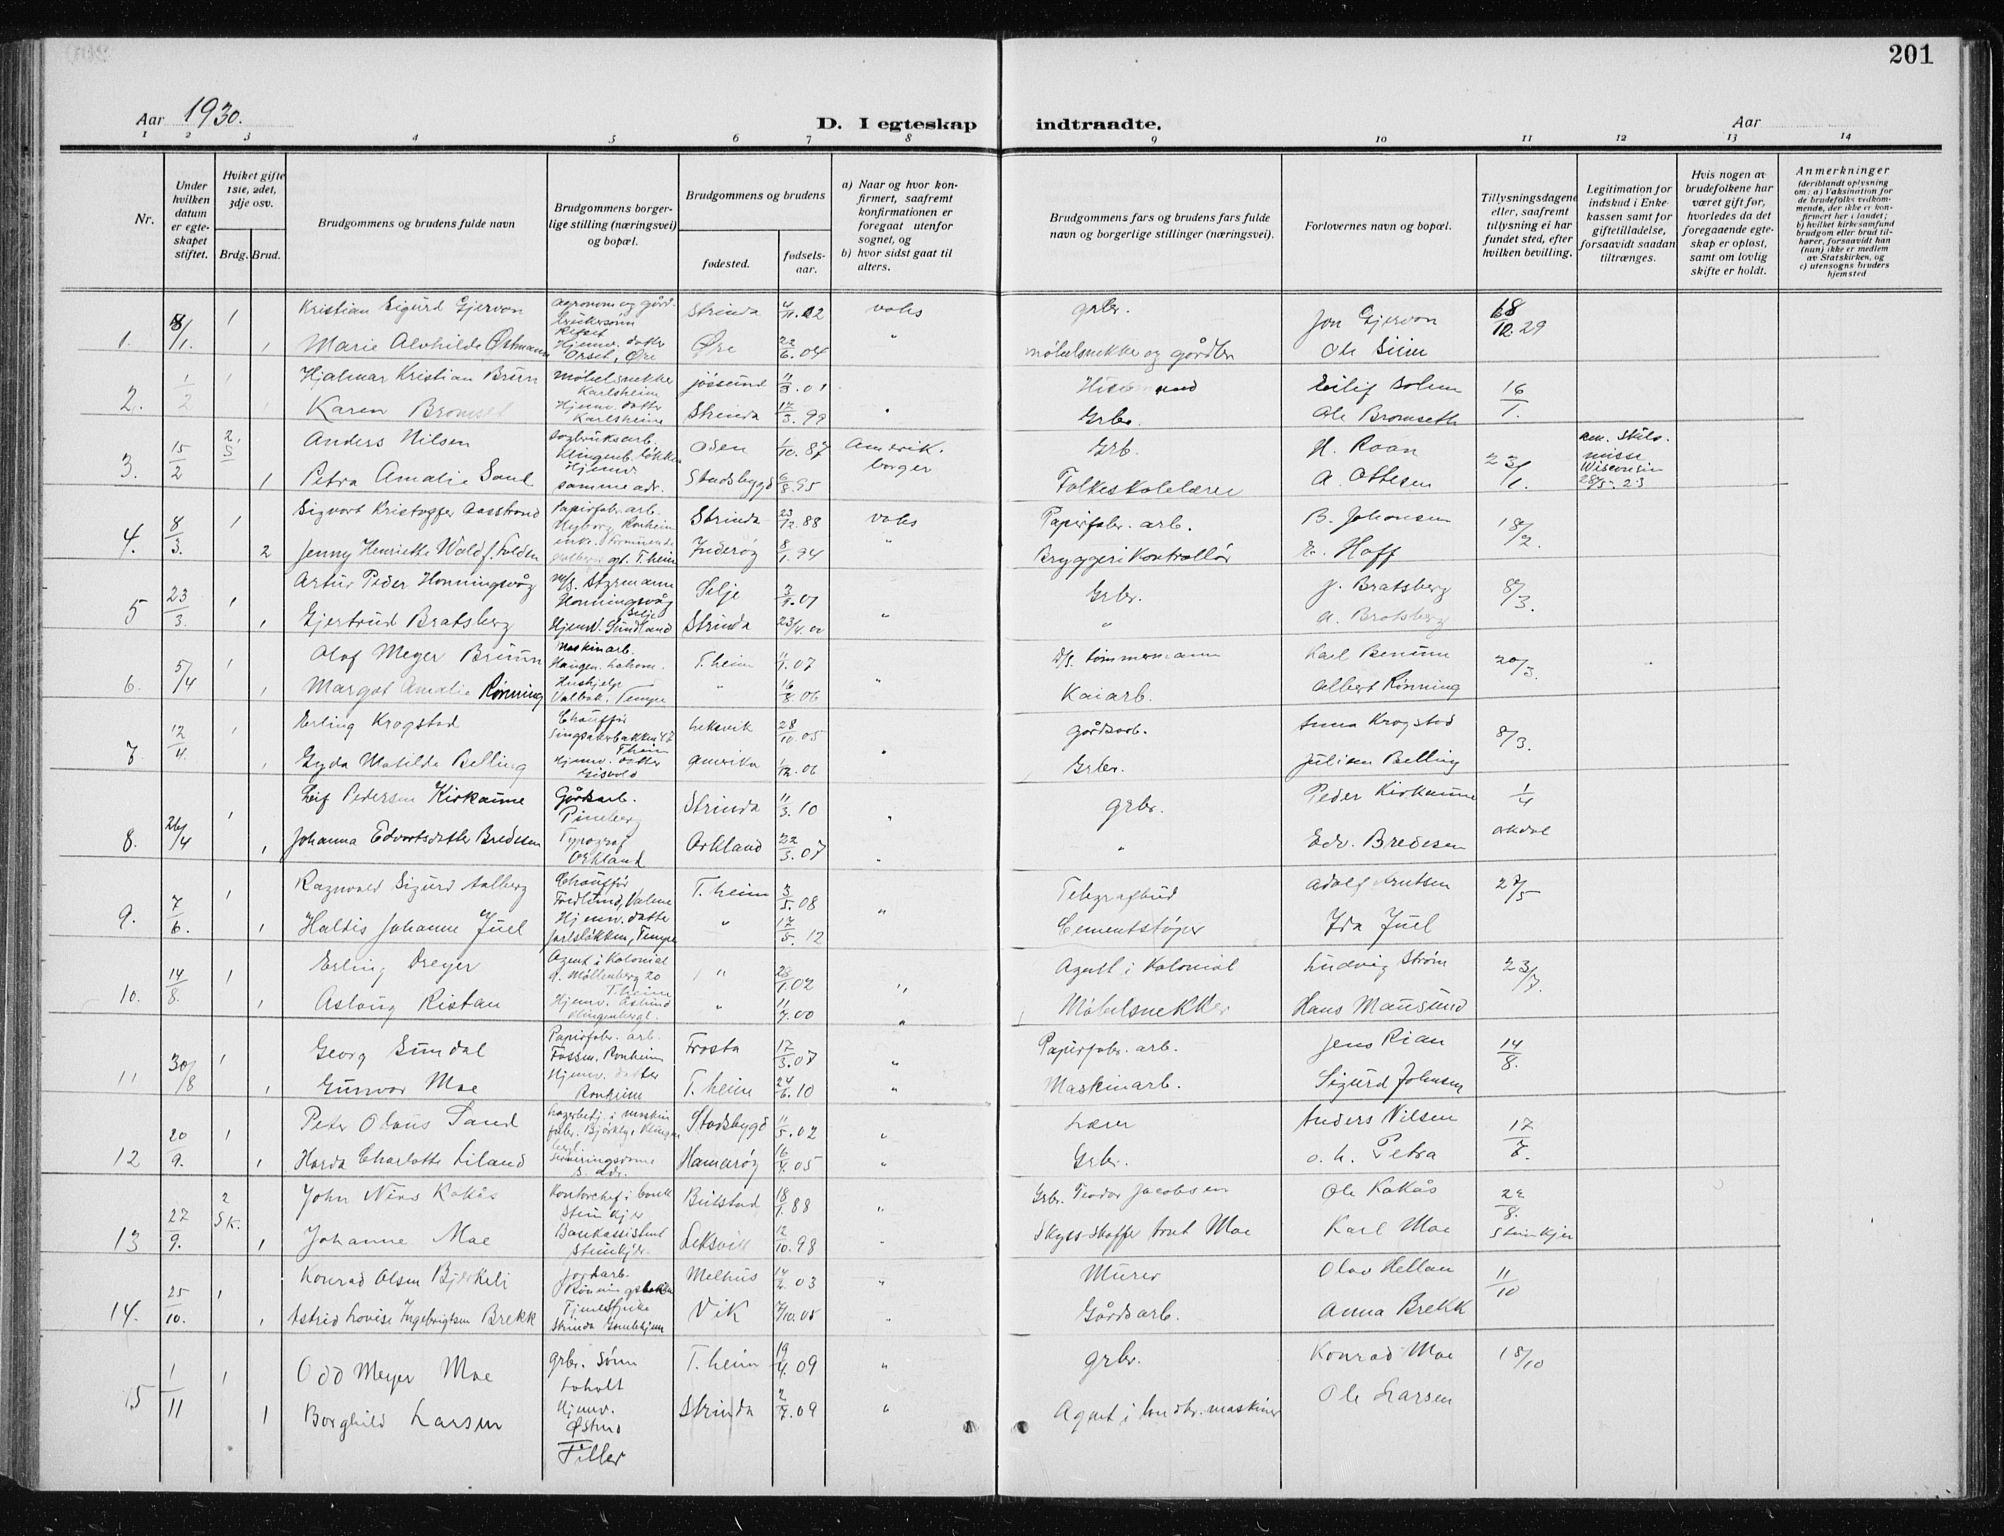 201
Aar 1930.
D. I egteskap indtraadte.
Aar
1 2 3 4 5 6 7 8 9 10 11 12 13 14
Nr.
Under hvilken datum er egteskapet stiftet.
Hviket gifte 1ste, 2det, 3dje osv.
Brdg. Brud.
Brudgommens og brudens fulde navn
Brudgommens borgerlige stilling (næringsvei) og bopæl.
Brudgommens og brudens
fødested.
fødselsaar.
a) Naar og hvor konfirmert, saafremt konfirmationen er foregaat utenfor sognet, og
b) hvor sidst gaat til alters.
Brudgommens fars og brudens fars fulde navn og borgerlige stillinger (næringsvei).
Forlovernes navn og bopæl.
Tillysningsdagene eller, saafremt tillysning ei har fundet sted, efter hvilken bevilling.
Legitimation for indskud i Enkekassen samt for giftetilladelse, forsaavidt saadan tiltrænges.
Hvis nogen av brudefolkene har været gift før, hvorledes da det foregaaende egteskap er opløst, samt om lovlig skifte er holdt.
Anmerkninger (deriblandt oplysning om: a) Vaksination for de brudefolks vedkommende, der ikke er konfirmert her i landet; b) hvilket kirkesamfund brudgom eller brud tilhører, forsaavidt han (hun) ikke er medlem av Statskirken, og c) utensogns bruders hjemsted
1 Kristian Sigurd Gjervan agronom og gård- Strinda 4/11.02 vaks grbr. Jon Gjervan 12.29
1. Marie Alvhilde Østmann Hjemv. datter Orset, Øre Øre 22/6.04 " møbelsnekker og gårdbr Ole Siim
1/2 1 Hjalmar Kristian Bruun Møbelsnekker Karlsheim jøssund 11/3.01 Eilif Solem 16/1.
2. Karen Bromset Hjemv. datter Karlsheim Strinda 17/3.99 " Grbr. Ole Bromseth
15/2 2. Anders Nilsen Klingenb. løkken 1/10.87 Amerik. borger Grb. H. Raan 23/1. Wisconsin
3. 1 Petra Amalie Sand Hjemv. samme adr. Stadsbygd 6/8.95 Folkeskolelærer A. Ottesen
8/3. 1 Sigvart Kristoffer Aasstrand Papirfabr. arb. Ranheim Strinda 23/12.88 vaks Papirfabr. arb. B. Johansen 18/2.
4. 2 Jenny Henriette Wold f. Folden T.heim Inderøy 8/1.94 " Bryggeri Kontrollør E. Hoff
23/3. 1 Artur Peder Honningsvåg Styrmann Honningsvåg Selje Selje Grbr. J. Bratsberg 8/3.
5 1 Gjertrud Bratsberg Hjemv. Sundland Strinda 23/4.00 " " A. Bratsberg
5/4 1 Olaf Meyer Bruun Maskinarb. T.heim 07 tømmermann Karl Benum 20/3.
6. 1 Margot Amalie Rønning Hushjelp Valbak. Tempe " 16/8.06 " Kaiarb. Albert Rønning
12/4. 1 Erling Krogstad Chauffør T.heim Leksvik 28/10.05 gårdsarb. Anna Krogstad 8/3.
7. 1 Gyda Matilde Belling Hjemv. datter Gisvold Amerika 1/12.06 " Grbr. Julian Belling
26/4 1 Leif Pedersen Kirkaune Gårdsarb. Pineberg Strinda 11/3.10 " grbr. Peder Kirkaune 1/4
8. 1 Johanna Edvartsdatter Bredesen Typograf Orkland Orkland 22/3.07 " " Edv. Bredesen orkdal
7/6. 1 Ragnvald Sigurd Aalberg Chauffør Fredlund, Valene T.heim 3/5.08 " Telegrafbud Adolf Knutsen 27/5
9. 1 Haldis Johanne Juel Hjemv. datter Jarlsløkken, Tempe " 17/5.12 Cementstøper Ida Juel
14/8. 1 Erling Dreyer Agent i Kolonial Møllenberg 20 T.heim " 28/1.02 " Agent i Kolonial Ludvig Strøm 23/7.
10. 1 Aslaug Ristan Hjemv. " 11/7.00 " Møbelsnekker Hans Mausund
30/8 1 Georg Sundal Papirfabr. arb. Fossen. Ranheim Frosta 17/3.07 " Papirfabr. arb. Jens Rian 14/8.
11 1 Gunvor Moe Hjemv. datter Ranheim T.heim 24/6.10 " Maskinarb. Sigurd Johnsen
20/9. 1 Peter Olaus Sand Stadsbygd 11/5.02 " Lærer Anders Nilsen 17/7.
12 1 Harda Charlotte Liland Serveringsdame s. adr. Hamarøy 16/4.05 " Grbr. o. h. Petra
27/9. 2 Sk. John Nives Kakås Kontorchef i bank Steinkjer Beitstad 18/1.88 " Grbr. Teodor Jacobsen Ole Kakås 22/8. Steinkjer
13 1 Johanne Moe Bankassistent Steinkjer Leksvik 12/10.98 " Karl Moe
25/10. 1 Konrad Olsen Bjerkeli Jordarb. Rønningsbakken Melhus 14/2.03 " Murer Olav Hellan 11/10
14. 1 Astrid Lovise Ingebrigtsen Brekk Strinda Gamlehjem Vik 7/10.05 " Gårdsarb. Anna Brekk
1/11 1 Odd Meyer Moe grbr. sønn Loholt T.heim 19/4.09 " grbr. Konrad Moe 18/10
15 1 Borghild Larsen Hjemv. Østmo Tiller Strinda 2/7.09 " Agent i landbr. maskiner Ole Larsen